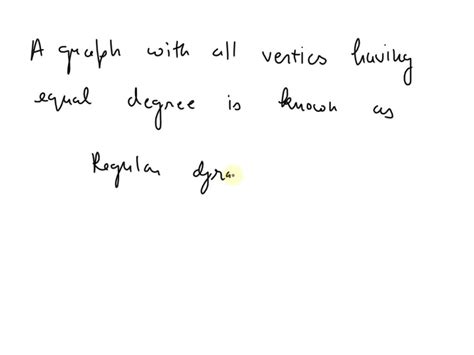 A graph with all vertics having
equal degree is known as
Regular